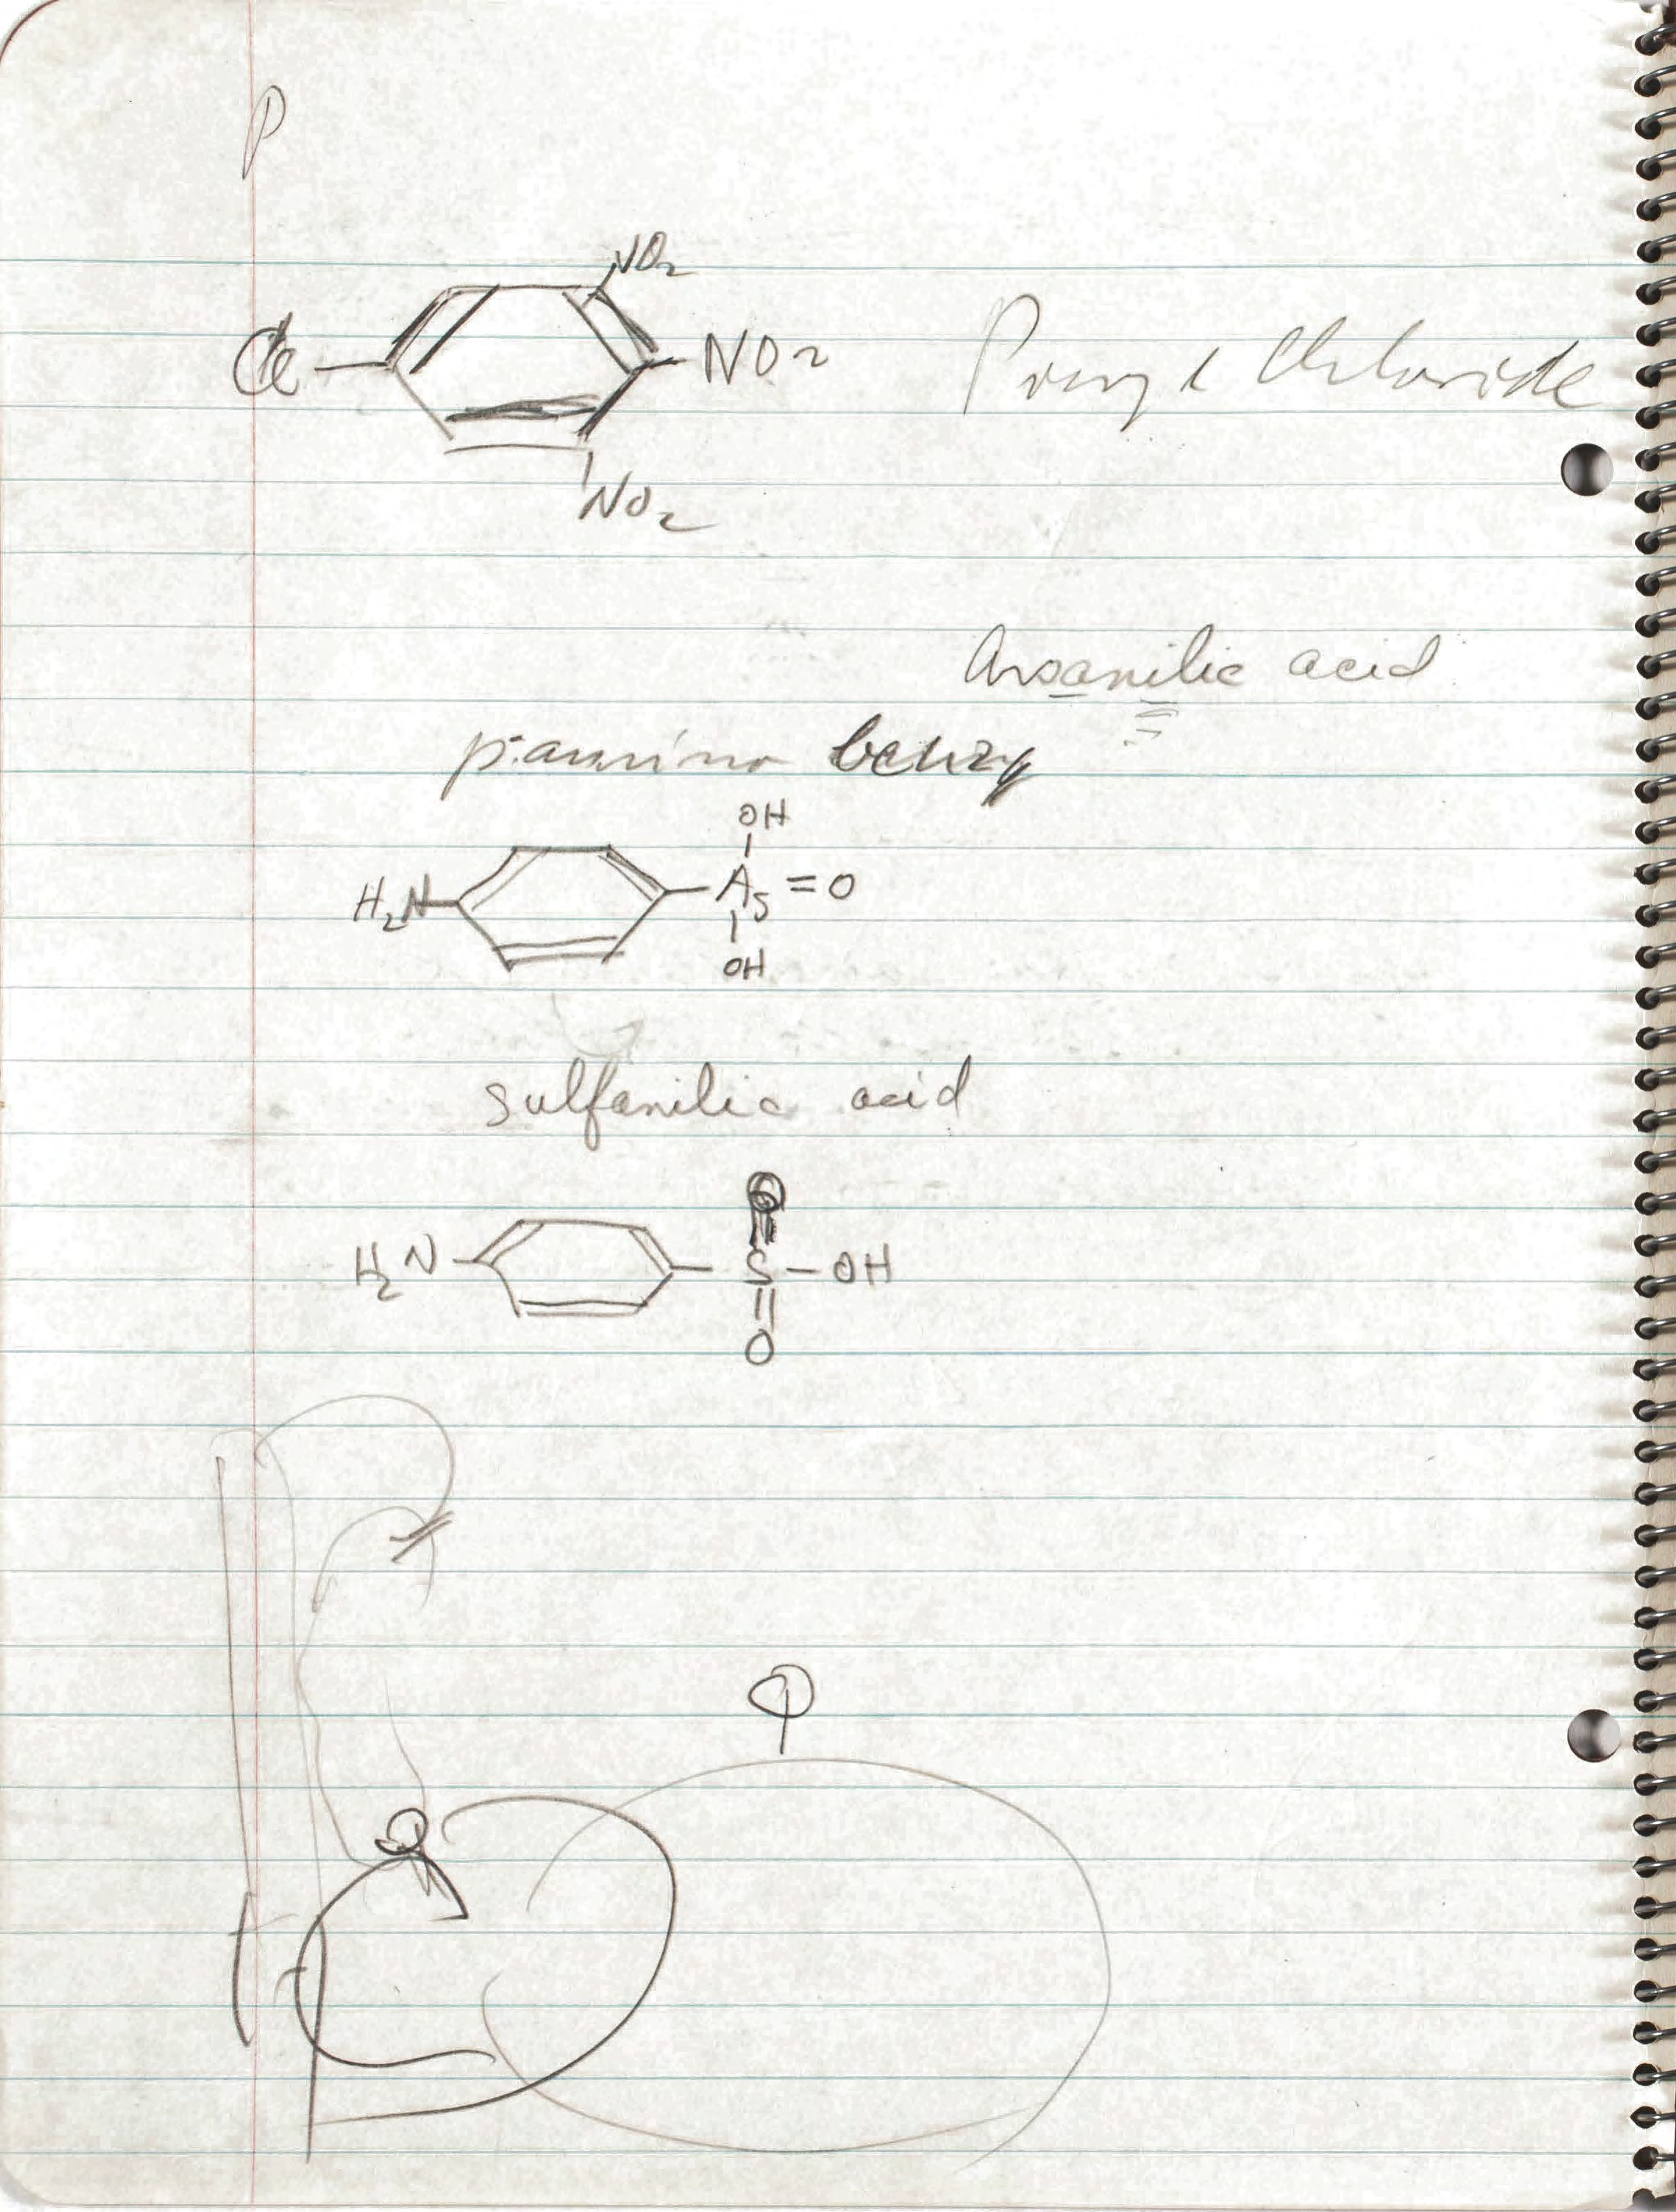 P
NO2
Cl NO2 Pcryl Chloride
NO2
Arsanilic acid
p-amino benzy
OH
H2N As = O
OH
sulfanilic acid
O
H2N S - OH
O